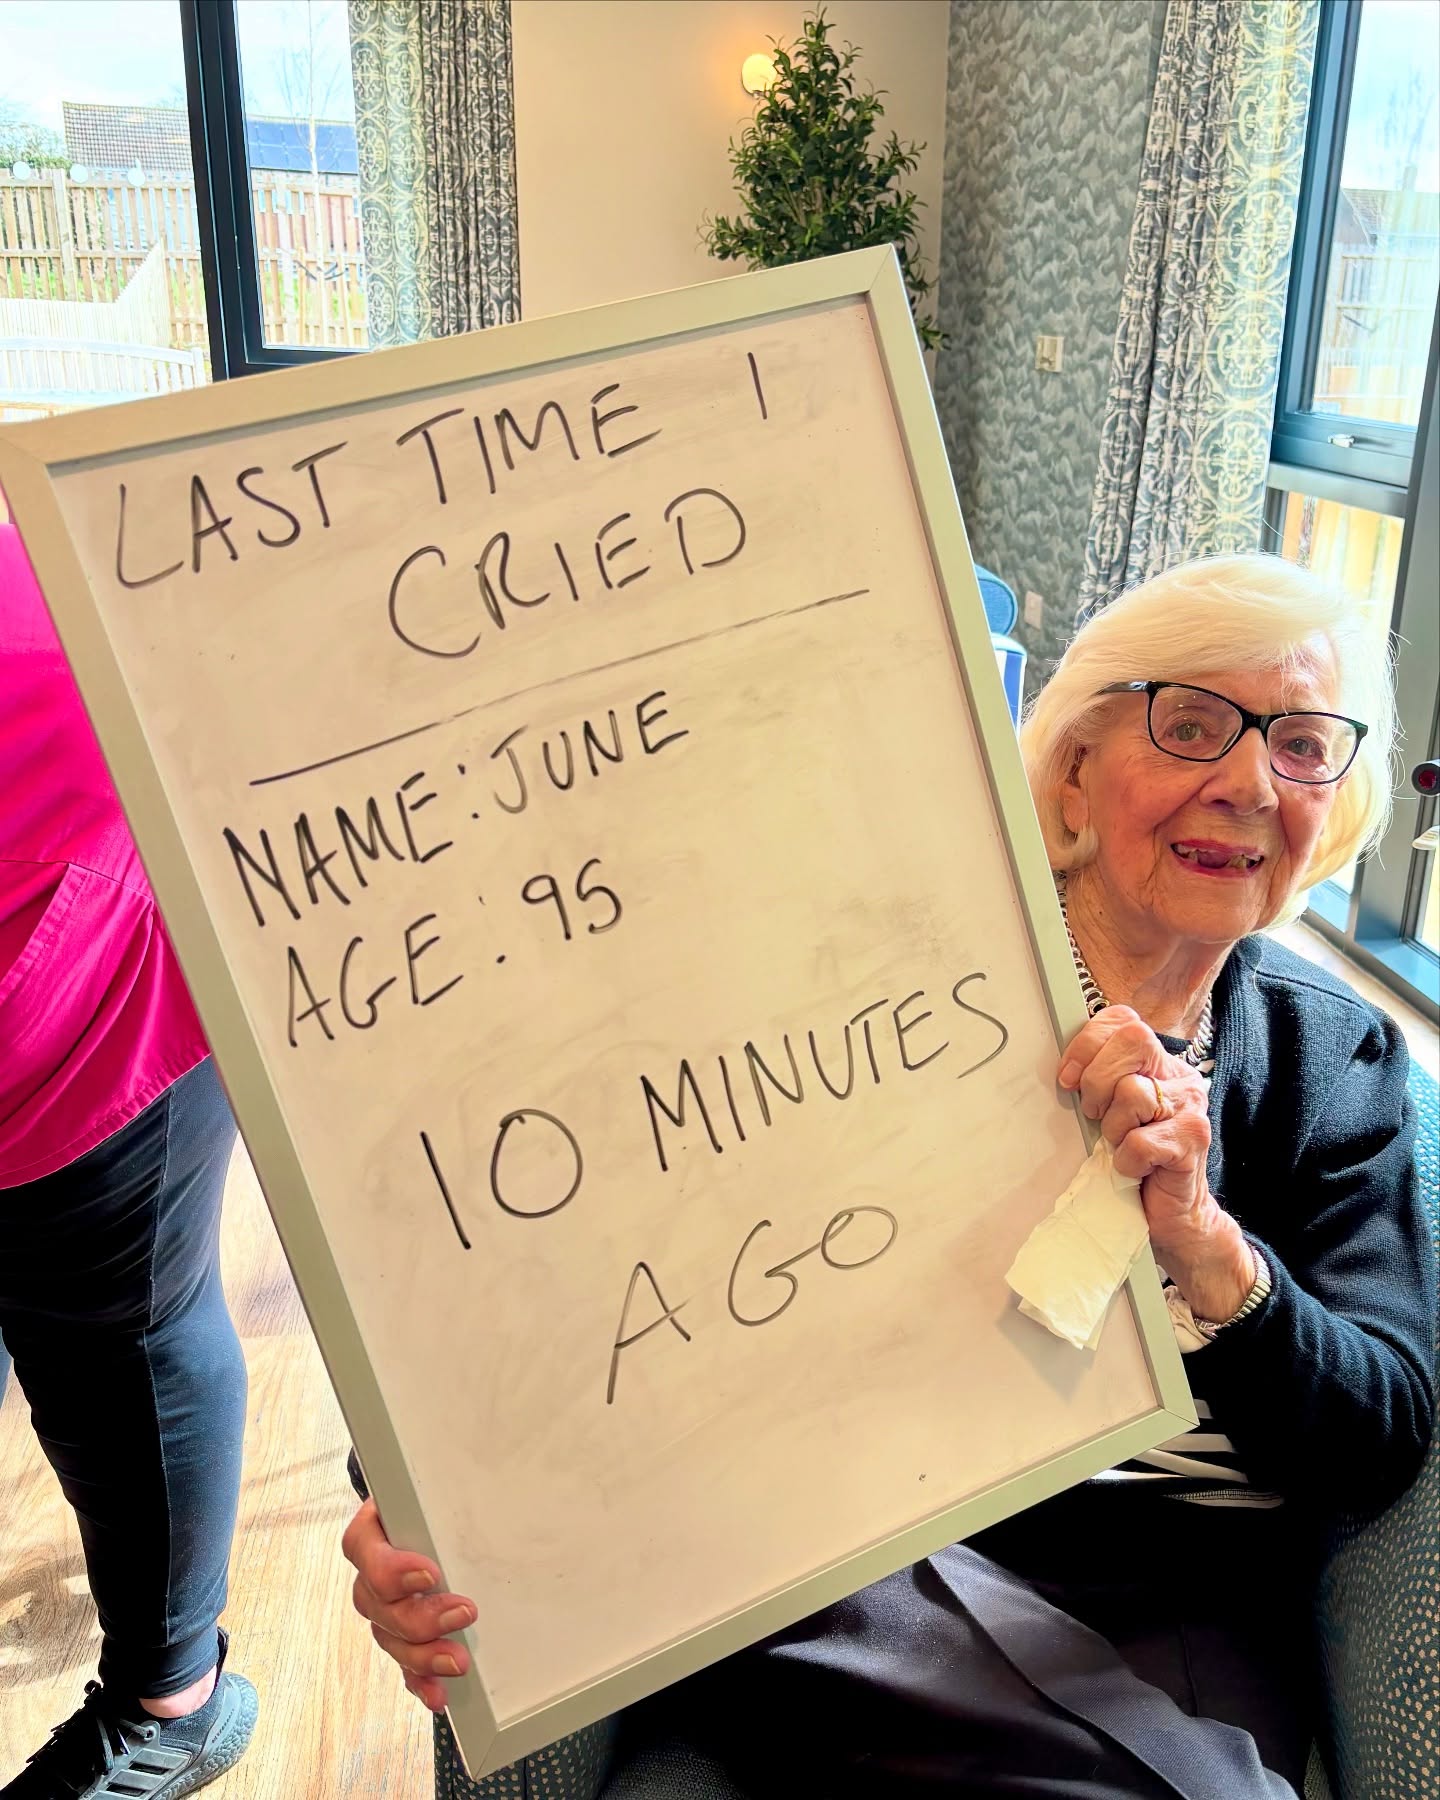 LAST TIME I
CRIED
NAME: JUNE
AGE: 95
10 MINUTES
AGO